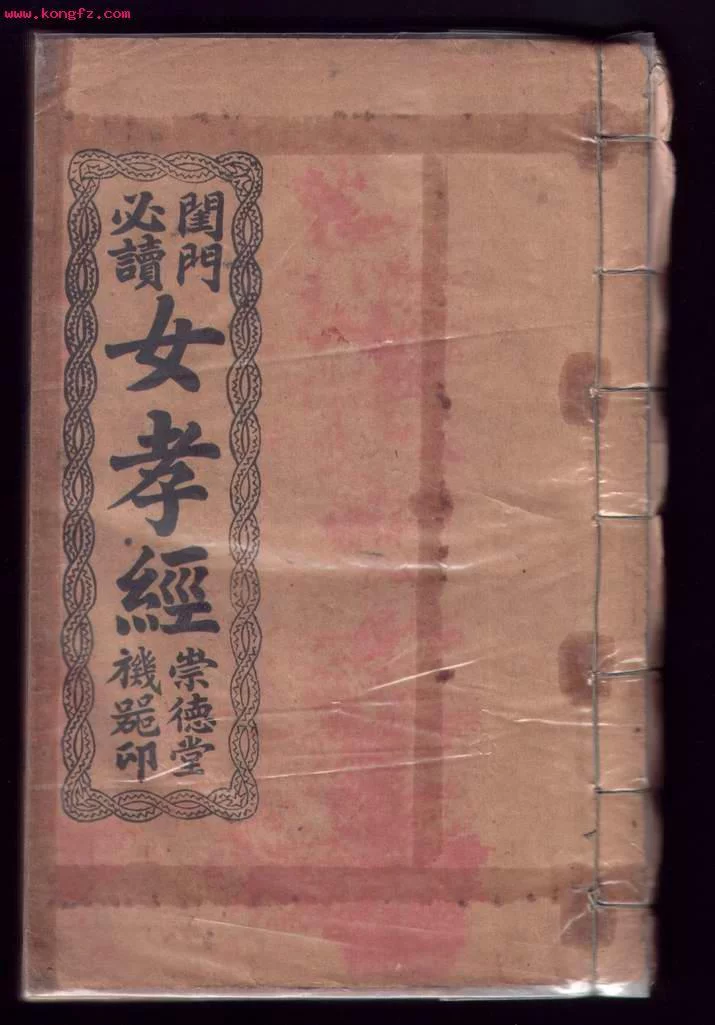 www.kongfz.com
閨門
必讀
女孝經
崇德堂
機器印